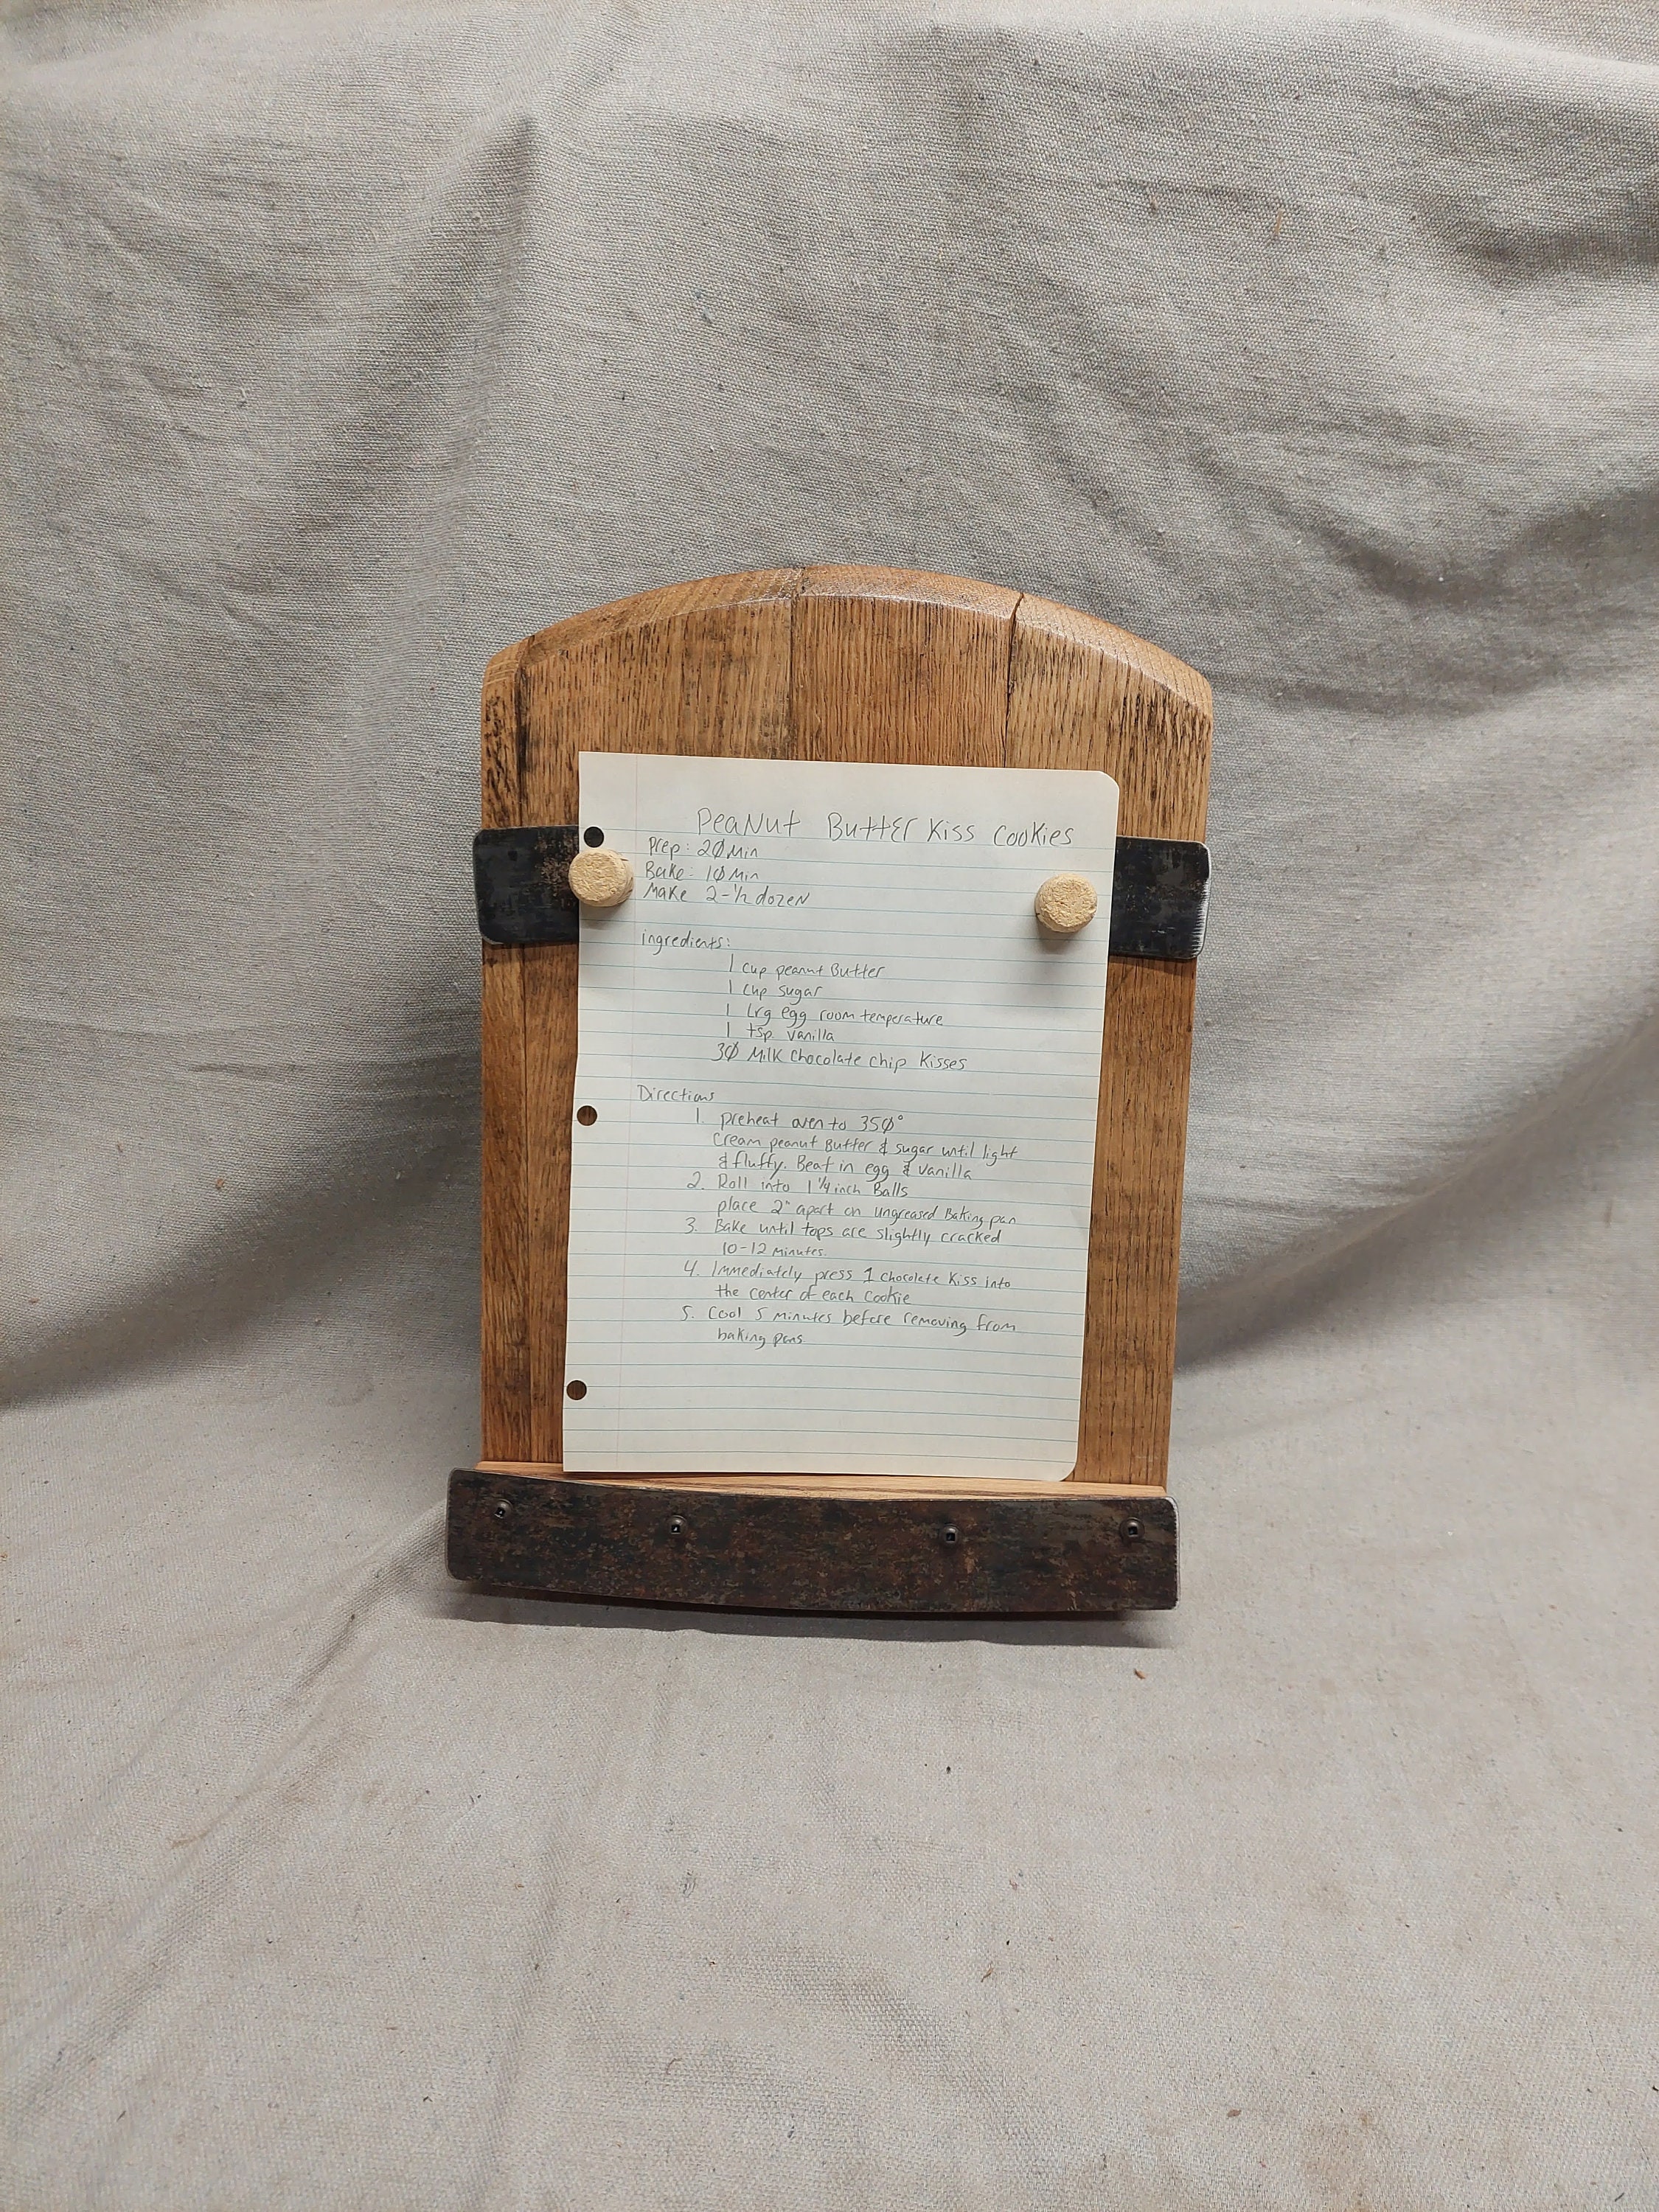 Peanut Butter Kiss Cookies
Prep: 20 Min
Bake: 10 Min
Make 2-1/2 dozen
ingredients:
1 cup peanut Butter
1 cup sugar
1 Lrg egg room temperature
1 tsp. vanilla
30 Milk Chocolate Chip Kisses
Directions
1. preheat oven to 350°
Cream peanut Butter & sugar until light
& fluffy. Beat in egg & vanilla
2. Roll into 1 1/4 inch Balls
place 2" apart on ungreased Baking pan
3. Bake until tops are slightly cracked
10-12 minutes.
4. Immediately press 1 chocolate Kiss into
the center of each cookie
5. Cool 5 minutes before removing from
baking pans